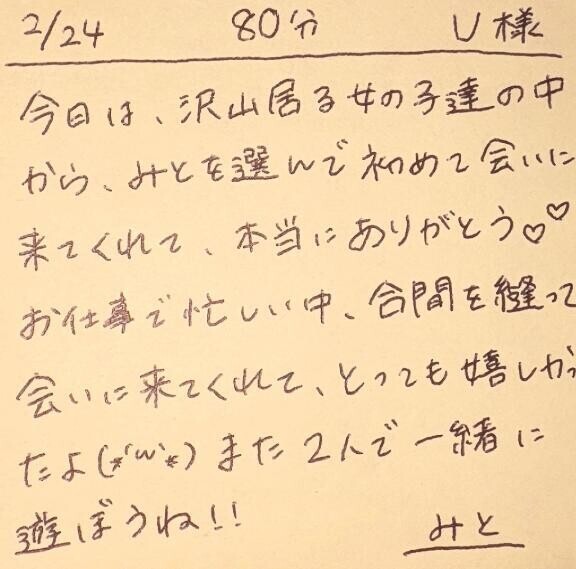 2/24 80分 U様
今日は、沢山居る女の子達の中
から、みとを選んで初めて会いに
来てくれて、本当にありがとう♡♡
お仕事で忙しい中、合間を縫って
会いに来てくれて、とっても嬉しかっ
たよ(*'ω'*)また2人で一緒に
遊ぼうね!!
みと